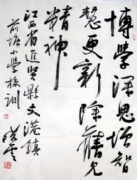 博學深思增智
慧更新除舊見
精神
江西省進賢縣文港鎮
前塘小學校训